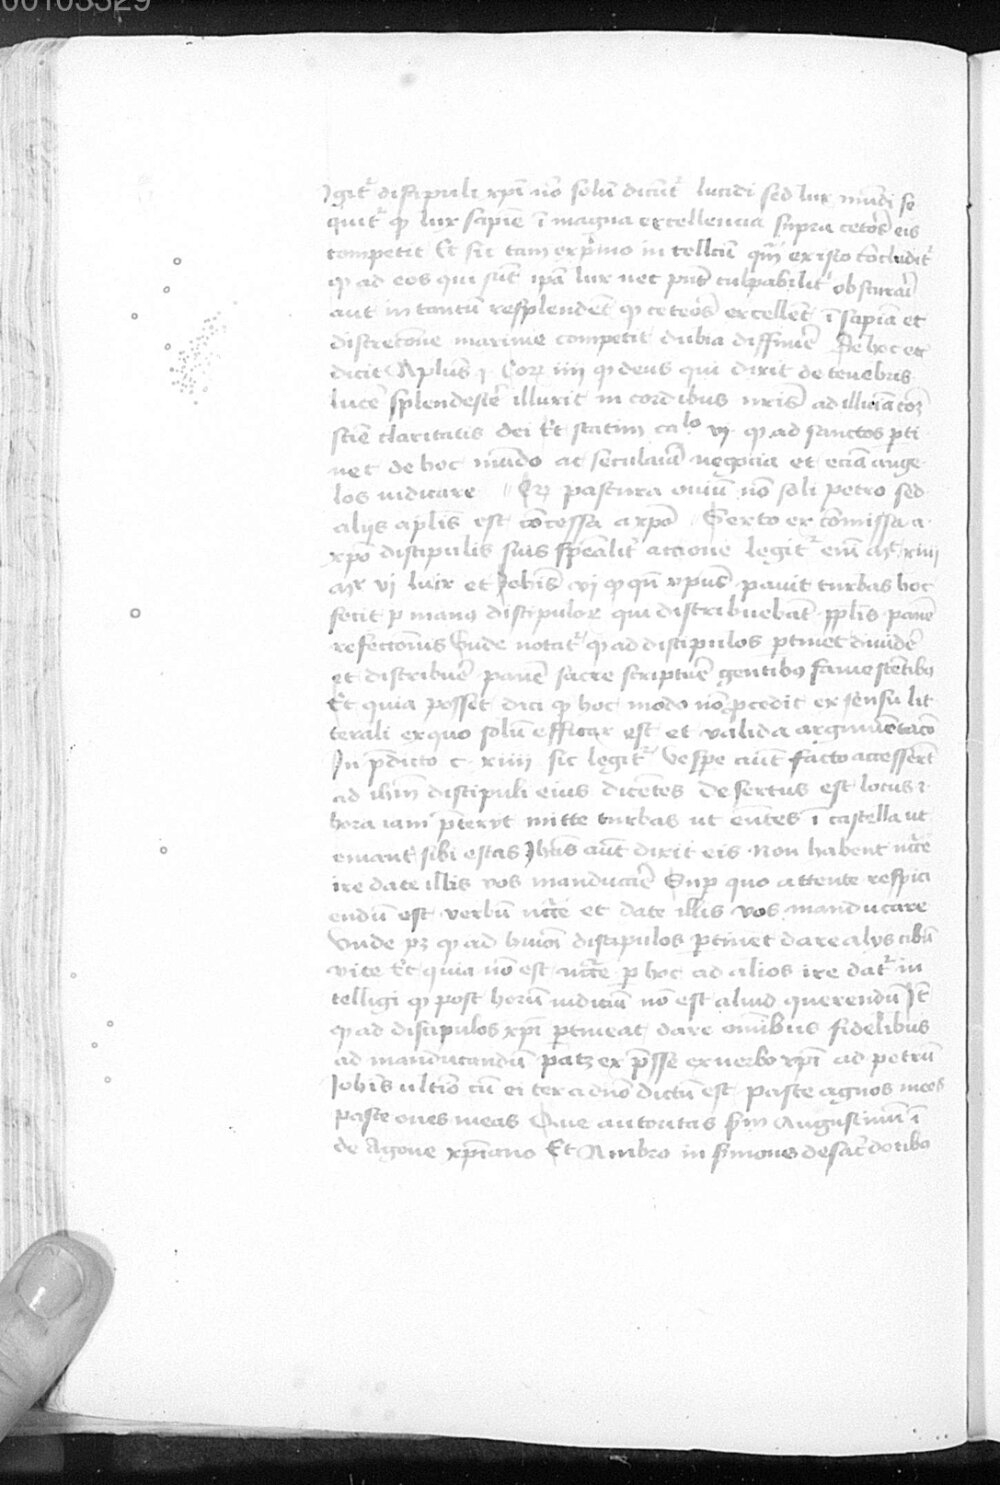 00103329
Igit᷑ discipuli xp̄i nō solū dicūt᷑ lucidi sed lux mūdi se
quit᷑ ꝙ lux sapiē ī magna excellencia supra cetōs eis
competit Et sic tam ex p̄mo in tellc̄m qm̄ ex isto cōcludit᷑
ꝙ ad eos qui sūt ip̄a lux nec pn̄t culpabilit᷑ obscurāi
aut in tantū resplendēt ꝙ ceteōs excellēt ī sapīa et
discretōne maxime competit dubia diffinīe De hoc et
dicit Aplus̄ ꝯ Cor̄ iiij ꝙ deus qui dixit de tenebris
lucē splendescē illuxit in cordibus nrīs ad illuīatōꝫ
sciē claritatis dei Et statim ca lo vj ꝙ ad sanctos p̄ti
net de hoc mūdo ac seculaīa negocia et eciā ange
los iudicare Qꝫ pastura ouiū nō soli petro sed
alijs aplīs est cōcessa a xp̄o Sexto ex cōmissa a
xp̄o discipulis suis sp̄ealit᷑ accione legit᷑ em̄ mt̄ xiiij
mr̄ vj luc̄ et Johīs vj ꝙ qn̄ xpūs pauit turbas hoc
fecit p manꝯ discipulor̄ qui distribuebāt pplīs panē
refectōnis Vnde notat᷑ ꝙ ad discipulos ptinet diuidē
et distribuē panē sacre scriptuē gentibꝯ fame scētibꝯ
Et quia posset dici ꝙ hoc modo nō p̄cedit ex sensu lit
terali ex quo solū efficax est et valida argumētacō
In p̄dicto c xiiij sic legit᷑ Vespe aūt facto accesserūt
ad ihm̄ discipuli eius dicētes desertus est locus ꝛ
hora iam p̄terijt mitte turbas ut eūtes ī castella ut
emant sibi escas Jhūs aūt dixit eis Non habent nc̄ce
ire date illis vos manducāe Sup quo attente respici
endū est verbū nc̄ce et date illis vos manducare
Vnde pꝫ ꝙ ad huiōi discipulos ptinet dare alijs cibū
vite Et quia nō est nc̄ce p hoc ad alios ire dat᷑ in
telligi ꝙ post horū iudiciū nō est aliud querendū Jt̄
ꝙ ad discipulos xp̄i ptineat dare om̄ibus fidelibus
ad manducandū patꝫ ex p̄sse ex uerbo xp̄i ad petrū
Johīs ultīo cū ei ter a dn̄o dictū est pasce agnos meos
pasce oues meas Que autoritas sm̄ Augustinū ī
de Agone xp̄iano Et Ambro in sīmone de sac̄dotibꝯ